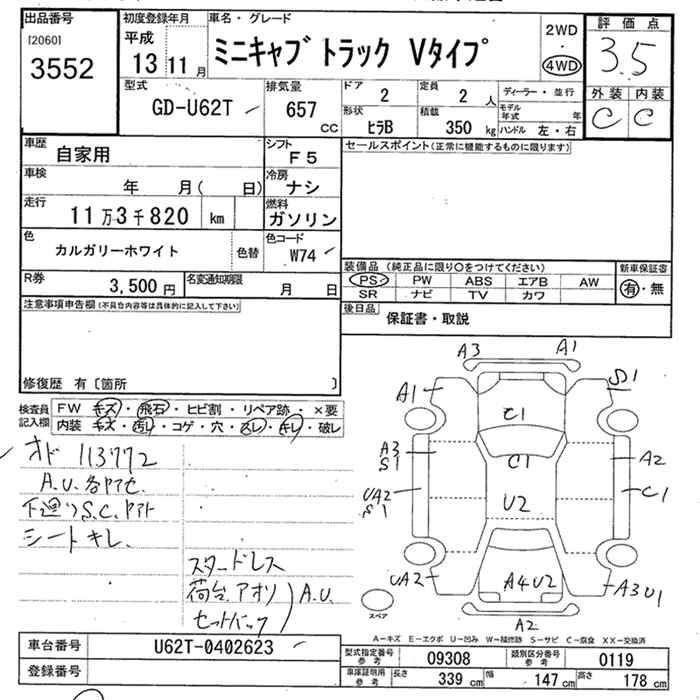 出品番号
[2060]
3552
初度登録年月
平成
13 11 月
車名・グレード
ミニキャブ トラック Vタイプ
2WD
・
4WD
評価点
3.5
外装 内装
C C
型式
GD-U62T
排気量
657
cc
ドア
2
定員
2 人
形状
ヒラB
積載
350 kg
ディーラー・並行
モデル年式 年
ハンドル 左・右
車歴
自家用
シフト
F5
車検
年 月( 日)
冷房
ナシ
走行
11万3千820 km
燃料
ガソリン
色
カルガリーホワイト
色替
色コード
W74
R券
3,500 円
名変通知期限
月 日
セールスポイント(正常に機能するものに限ります)
装備品 (純正品に限り○をつけてください)
PS PW ABS エアB AW
SR ナビ TV カワ
新車保証書
有・無
後日品
保証書・取説
注意事項申告欄(不具合内容等は具体的に記入して下さい)
修復歴 有〔箇所 〕
検査員記入欄
FW キズ・飛石・ヒビ割・リペア跡・×要
内装 キズ・汚レ・コゲ・穴・スレ・キレ・破レ
オド 113772
A.U.各ヤセ.
下廻りS.C.ヤケト
シートキレ.
スタッドレス
荷台.アオリ
セットバック
A.U.
A3 A1
A1 S1
C1
A3
S1
C1
A2
UA2
S1
C1
U2
UA2
A4U2
A3U1
A2
スペア
A-キズ E-エクボ U-凹み W-補修跡 S-サビ C-腐食 XX-交換済
車台番号
U62T-0402623
登録番号
型式指定番号
参考
09308
類別区分番号
参考
0119
車庫証明用
参考
長さ
339 cm
幅
147 cm
高さ
178 cm